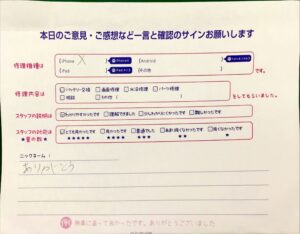 本日のご意見・ご感想など一言と確認のサインお願いします
修理機種は
iPhone X
Android
iPad
その他
です。
修理内容は
バッテリー交換 画面修理 水没修理 パーツ修理
その他(
をしてもらいました。
スタッフの説明は
わかりやすかったです 理解できました 少しわかりにくかったです 難しかったです
スタッフの対応は
とても良かったです 良かったです 普通でした あまり良くなかったです 良くなかったです
ニックネーム:
ありがとう
機楽に直って良かったです。ありがとうございました